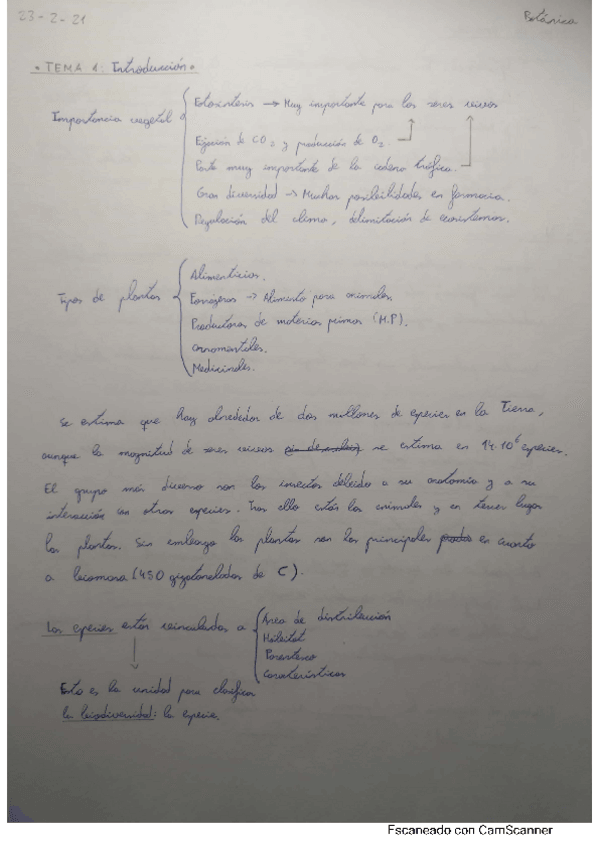 23-2-21
Botánica
• TEMA 1: Introducción •
Importancia vegetal
Fotosíntesis → Muy importante para los seres vivos
Fijación de CO2 y producción de O2.
Parte muy importante de la cadena trófica.
Gran diversidad → Muchas posibilidades en farmacia.
Regulación del clima, delimitación de ecosistemas.
Tipos de plantas
Alimenticias.
Forrajeras → Alimento para animales.
Productoras de materias primas (M.P).
Ornamentales.
Medicinales.
Se estima que hay alrededor de dos millones de especies en la Tierra,
aunque la magnitud de seres vivos se estima en 14·10⁶ especies.
El grupo más diverso son los insectos debido a su anatomía y a su
interacción con otras especies. Tras ello están los animales y en tercer lugar
las plantas. Sin embargo las plantas son las principales en cuanto
a biomasa (450 gigatoneladas de C).
Las especies están vinculadas a
Área de distribución
Hábitat
Parentesco
Características
Esto es la unidad para clasificar
la biodiversidad: la especie.
Escaneado con CamScanner